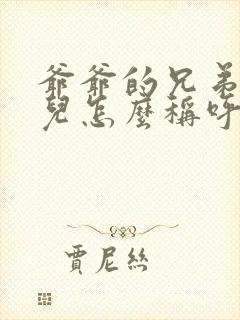 爺爺的兄弟
兒怎麼稱呼
賈尼絲